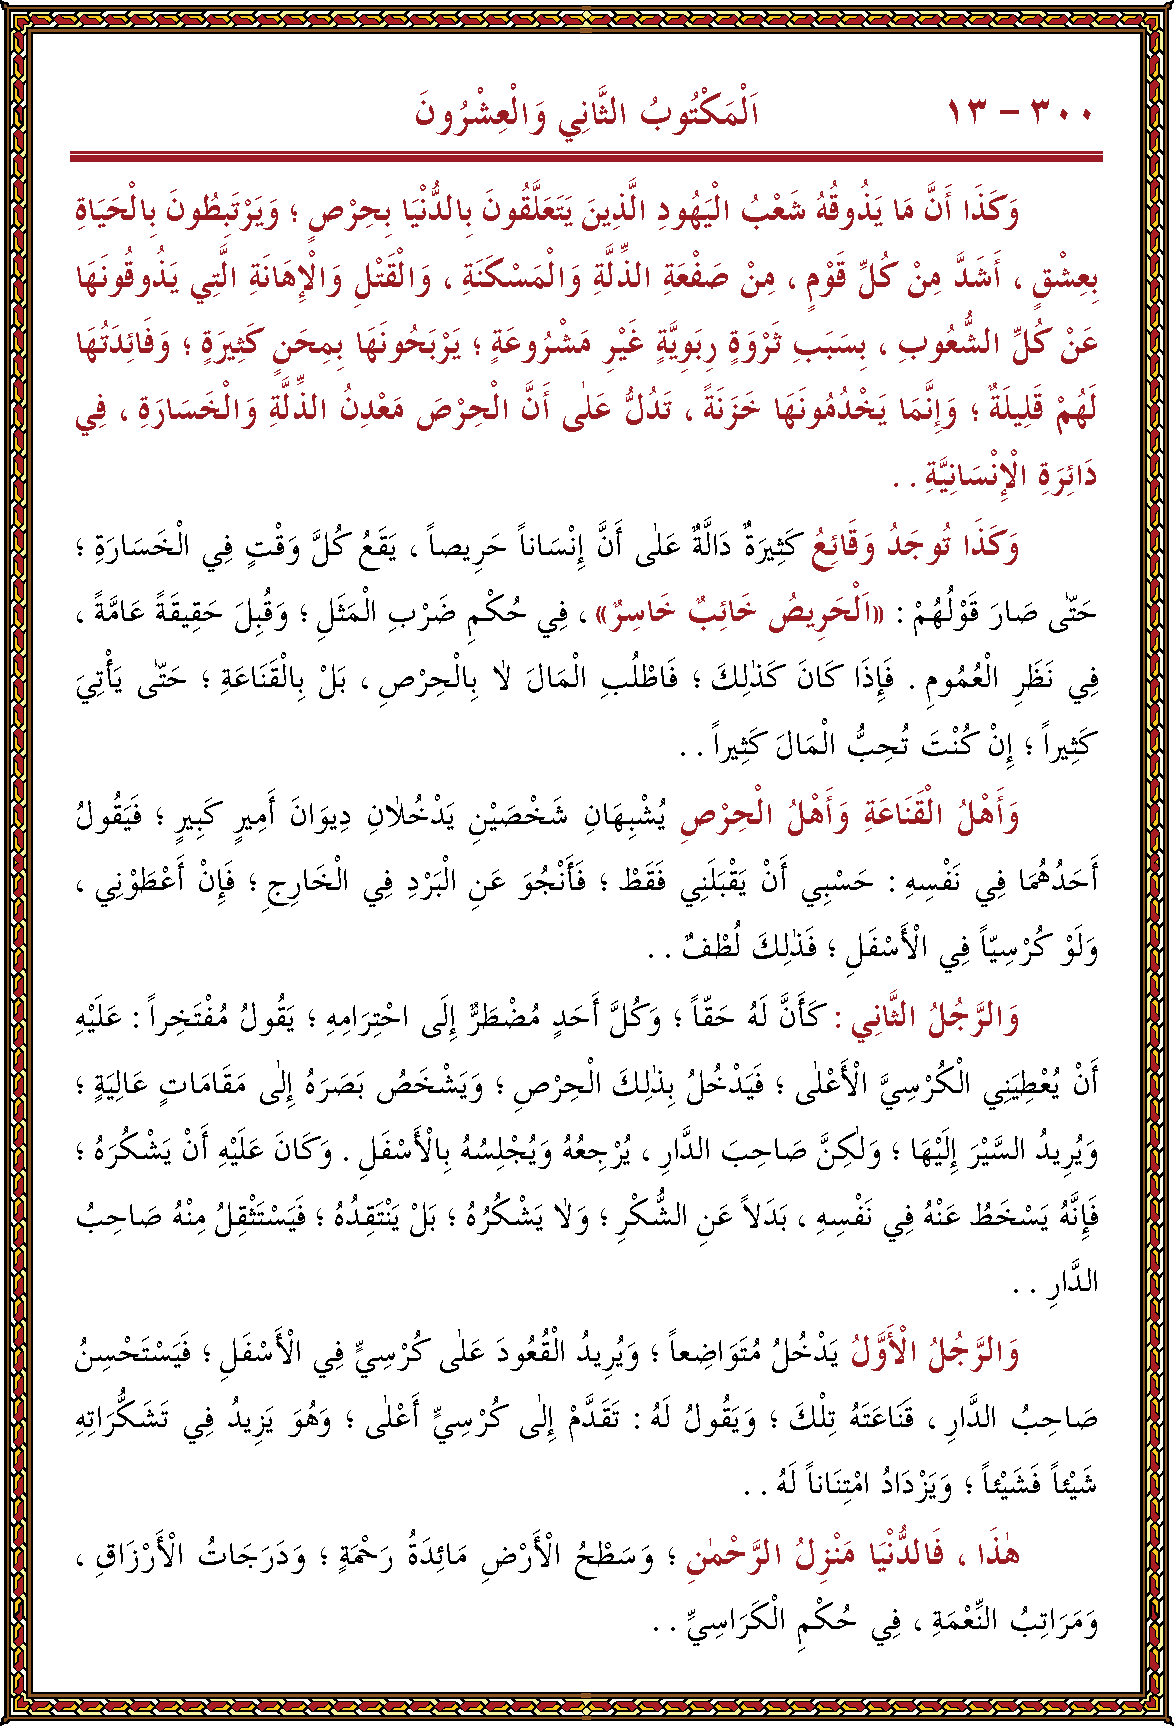 ٣٠٠ – ١٣ اَلْمَكْتُوبُ الثَّانِي وَالْعِشْرُونَ
وَكَذَا أَنَّ مَا يَذُوقُهُ شَعْبُ الْيَهُودِ الَّذِينَ يَتَعَلَّقُونَ بِالدُّنْيَا بِحِرْصٍ ؛ وَيَرْتَبِطُونَ بِالْحَيَاةِ
بِعِشْقٍ ، أَشَدَّ مِنْ كُلِّ قَوْمٍ ، مِنْ صَفْعَةِ الذِّلَّةِ وَالْمَسْكَنَةِ ، وَالْقَتْلِ وَالْإِهَانَةِ الَّتِي يَذُوقُونَهَا
عَنْ كُلِّ الشُّعُوبِ ، بِسَبَبِ ثَرْوَةٍ رِبَوِيَّةٍ غَيْرِ مَشْرُوعَةٍ ؛ يَرْبَحُونَهَا بِمِحَنٍ كَثِيرَةٍ ؛ وَفَائِدَتُهَا
لَهُمْ قَلِيلَةٌ ؛ وَإِنَّمَا يَخْدُمُونَهَا خَزَنَةً ، تَدُلُّ عَلٰى أَنَّ الْحِرْصَ مَعْدِنُ الذِّلَّةِ وَالْخَسَارَةِ ، فِي
دَائِرَةِ الْإِنْسَانِيَّةِ . .
وَكَذَا تُوجَدُ وَقَائِعُ كَثِيرَةٌ دَالَّةٌ عَلٰى أَنَّ إِنْسَاناً حَرِيصاً ، يَقَعُ كُلَّ وَقْتٍ فِي الْخَسَارَةِ ؛
حَتّٰى صَارَ قَوْلُهُمْ : «اَلْحَرِيصُ خَائِبٌ خَاسِرٌ» ، فِي حُكْمِ ضَرْبِ الْمَثَلِ ؛ وَقُبِلَ حَقِيقَةً عَامَّةً ،
فِي نَظَرِ الْعُمُومِ . فَإِذَا كَانَ كَذٰلِكَ ؛ فَاطْلُبِ الْمَالَ لَا بِالْحِرْصِ ، بَلْ بِالْقَنَاعَةِ ؛ حَتّٰى يَأْتِيَ
كَثِيراً ؛ إِنْ كُنْتَ تُحِبُّ الْمَالَ كَثِيراً . .
وَأَهْلُ الْقَنَاعَةِ وَأَهْلُ الْحِرْصِ يُشْبِهَانِ شَخْصَيْنِ يَدْخُلَانِ دِيوَانَ أَمِيرٍ كَبِيرٍ ؛ فَيَقُولُ
أَحَدُهُمَا فِي نَفْسِهِ : حَسْبِي أَنْ يَقْبَلَنِي فَقَطْ ؛ فَأَنْجُوَ عَنِ الْبَرْدِ فِي الْخَارِجِ ؛ فَإِنْ أَعْطَوْنِي ،
وَلَوْ كُرْسِيّاً فِي الْأَسْفَلِ ؛ فَذٰلِكَ لُطْفٌ . .
وَالرَّجُلُ الثَّانِي : كَأَنَّ لَهُ حَقّاً ؛ وَكُلَّ أَحَدٍ مُضْطَرٌّ إِلَى احْتِرَامِهِ ؛ يَقُولُ مُفْتَخِراً : عَلَيْهِ
أَنْ يُعْطِيَنِي الْكُرْسِيَّ الْأَعْلٰى ؛ فَيَدْخُلُ بِذٰلِكَ الْحِرْصِ ؛ وَيَشْخَصُ بَصَرَهُ إِلٰى مَقَامَاتٍ عَالِيَةٍ ؛
وَيُرِيدُ السَّيْرَ إِلَيْهَا ؛ وَلٰكِنَّ صَاحِبَ الدَّارِ ، يُرْجِعُهُ وَيُجْلِسُهُ بِالْأَسْفَلِ . وَكَانَ عَلَيْهِ أَنْ يَشْكُرَهُ ؛
فَإِنَّهُ يَسْخَطُ عَنْهُ فِي نَفْسِهِ ، بَدَلاً عَنِ الشُّكْرِ ؛ وَلَا يَشْكُرُهُ ؛ بَلْ يَنْتَقِدُهُ ؛ فَيَسْتَثْقِلُ مِنْهُ صَاحِبُ
الدَّارِ . .
وَالرَّجُلُ الْأَوَّلُ يَدْخُلُ مُتَوَاضِعاً ؛ وَيُرِيدُ الْقُعُودَ عَلٰى كُرْسِيٍّ فِي الْأَسْفَلِ ؛ فَيَسْتَحْسِنُ
صَاحِبُ الدَّارِ ، قَنَاعَتَهُ تِلْكَ ؛ وَيَقُولُ لَهُ : تَقَدَّمْ إِلٰى كُرْسِيٍّ أَعْلٰى ؛ وَهُوَ يَزِيدُ فِي تَشَكُّرَاتِهِ
شَيْئاً فَشَيْئاً ؛ وَيَزْدَادُ امْتِنَاناً لَهُ . .
هٰذَا ، فَالدُّنْيَا مَنْزِلُ الرَّحْمٰنِ ؛ وَسَطْحُ الْأَرْضِ مَائِدَةُ رَحْمَةٍ ؛ وَدَرَجَاتُ الْأَرْزَاقِ ،
وَمَرَاتِبُ النِّعْمَةِ ، فِي حُكْمِ الْكَرَاسِيِّ . .